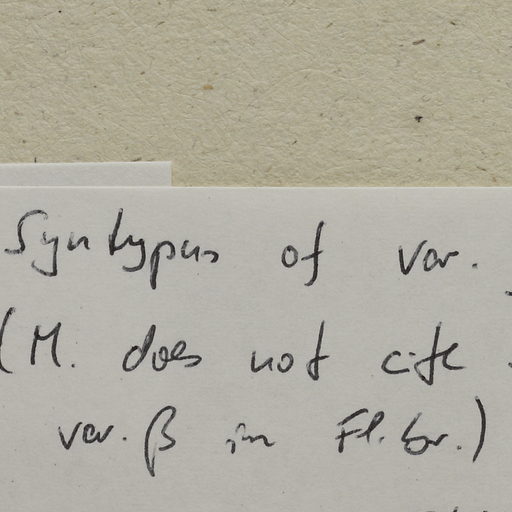 Syntypus of var.
(M. does not cite
var. β in Fl. br.)